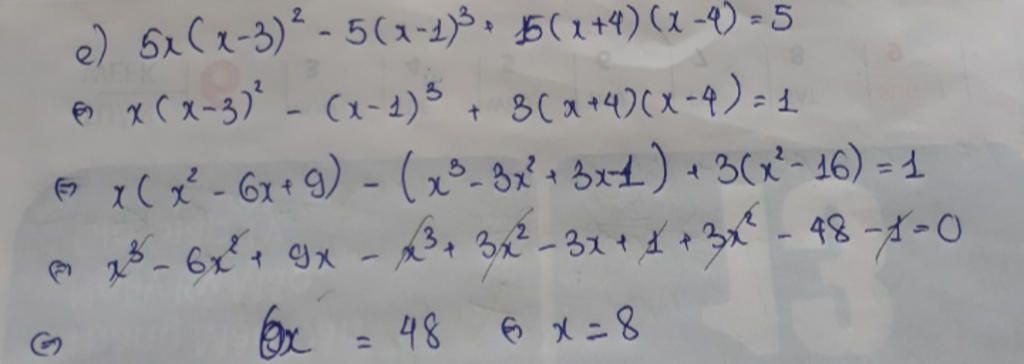 e) 5x(x-3)² - 5(x-1)³ + 15(x+4)(x-4) = 5
⇔ x(x-3)² - (x-1)³ + 3(x+4)(x-4) = 1
⇔ x(x² - 6x + 9) - (x³ - 3x² + 3x - 1) + 3(x² - 16) = 1
⇔ x³ - 6x² + 9x - x³ + 3x² - 3x + 1 + 3x² - 48 - 1 = 0
⇔ 6x = 48 ⇔ x = 8